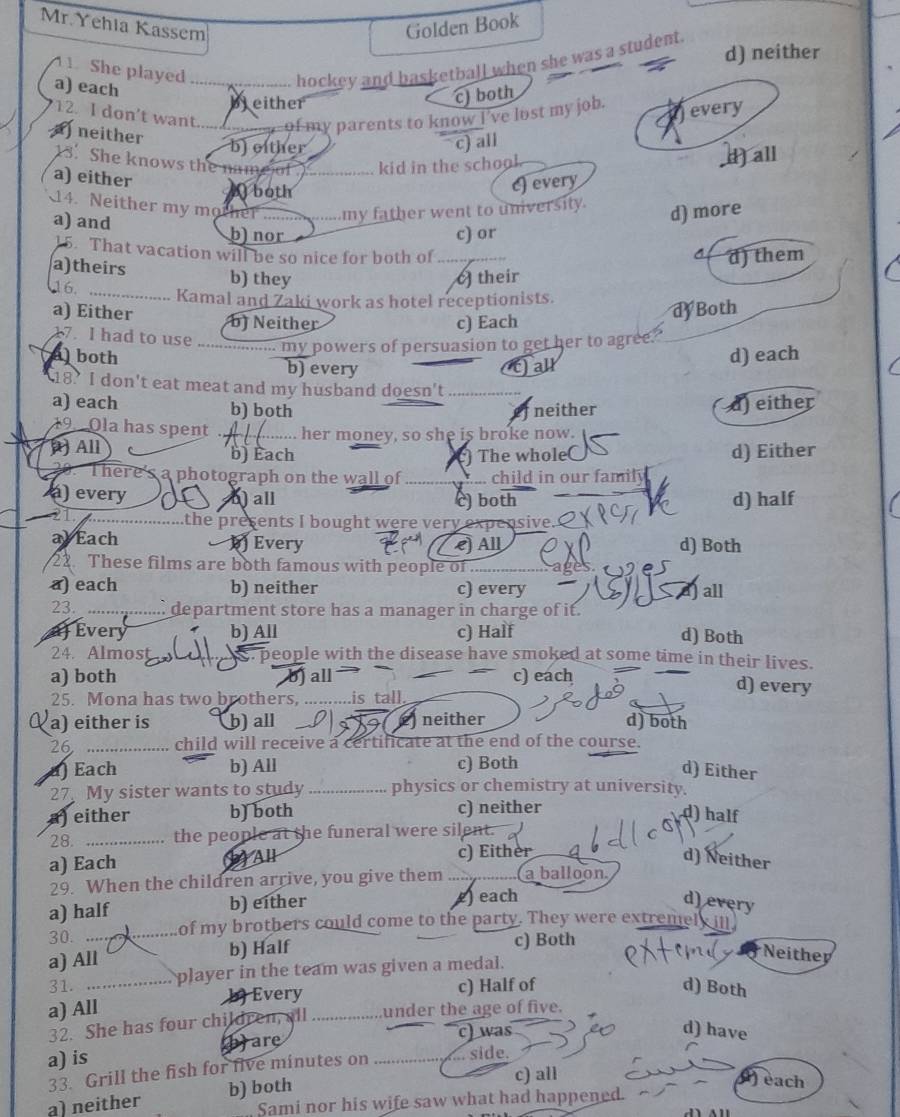 Mr.Yehia Kassem
Golden Book
11. She played .................... hockey and basketball when she was a student.
a) each b) either c) both d) neither
12. I don't want............... of my parents to know I've lost my job.
a) neither b) either c) all d) every
13. She knows the name of ............... kid in the school.
a) either b) both c) every d) all
14. Neither my mother ...............my father went to university.
a) and b) nor c) or d) more
15. That vacation will be so nice for both of ...............
a)theirs b) they c) their d) them
16. ............... Kamal and Zaki work as hotel receptionists.
a) Either b) Neither c) Each d) Both
17. I had to use ............... my powers of persuasion to get her to agree.
a) both b) every c) all d) each
18. I don't eat meat and my husband doesn't ...............
a) each b) both c) neither d) either
19. Ola has spent All ............... her money, so she is broke now.
a) All b) Each c) The whole d) Either
كل
20. There's a photograph on the wall of ............... child in our family
a) every b) all c) both d) half
21. ...............the presents I bought were very expensive.
a) Each b) Every c) All d) Both
22. These films are both famous with people of ...............ages.
a) each b) neither c) every d) all
23. ............... department store has a manager in charge of it.
a) Every b) All c) Half d) Both
24. Almost ............... people with the disease have smoked at some time in their lives.
a) both b) all c) each d) every
25. Mona has two brothers, ..........is tall.
a) either is b) all c) neither d) both
26. ............... child will receive a certificate at the end of the course.
a) Each b) All c) Both d) Either
27. My sister wants to study ............... physics or chemistry at university.
a) either b) both c) neither d) half
28. ............... the people at the funeral were silent.
a) Each b) All c) Either d) Neither
29. When the children arrive, you give them ............... a balloon.
a) half b) either c) each d) every
30. ...............of my brothers could come to the party. They were extremely ill.
a) All b) Half c) Both d) Neither
31. ............... player in the team was given a medal.
a) All b) Every c) Half of d) Both
32. She has four children, all ...............under the age of five.
a) is b) are c) was d) have
33. Grill the fish for five minutes on ............... side.
a) neither b) both c) all d) each
Sami nor his wife saw what had happened.
d) All